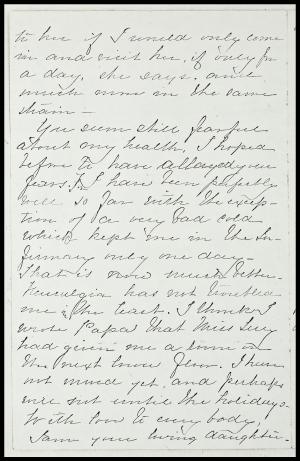 to her if I would only come
in and visit her, if only for
a day, she says. and
much more in the same
strain —
You seem still fearful
about my health, I hoped
before to have allayed your
fears. I have been perfectly
well so far with the excep-
tion of a very bad cold
which kept me in the In-
firmary only one day —
That is now much better.
Neuralgia has not troubled
me in the least. I think I
wrote Papa that Miss
had given me a room on
the next lower floor. I have
not moved yet, and perhaps
will not until the holidays.
With love to every body,
I am your loving daughter.